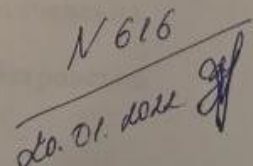 N 616
20.01.2022